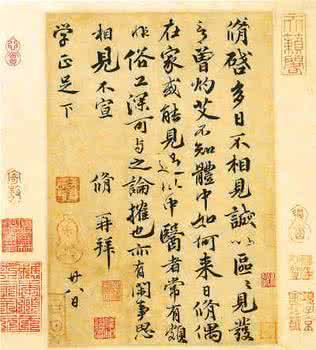 脩啓多日不相見誠以區〻見發
言曾灼艾不知體中如何來日脩偶
在家或能見過此中醫者常有頗
非俗工深可与之論搉也亦有閑事思
相見不宣 脩再拜 廿八日
学正足下